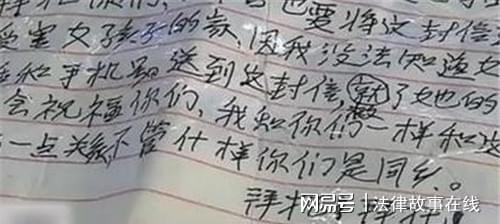 也要将这封信
受害女孩子的家,因我没法知道女
和手机号送到这封信,就了她的
会祝福你们,我知你们一样和
一点关系不管什样你们是同乡。
拜
网易号 | 法律故事在线